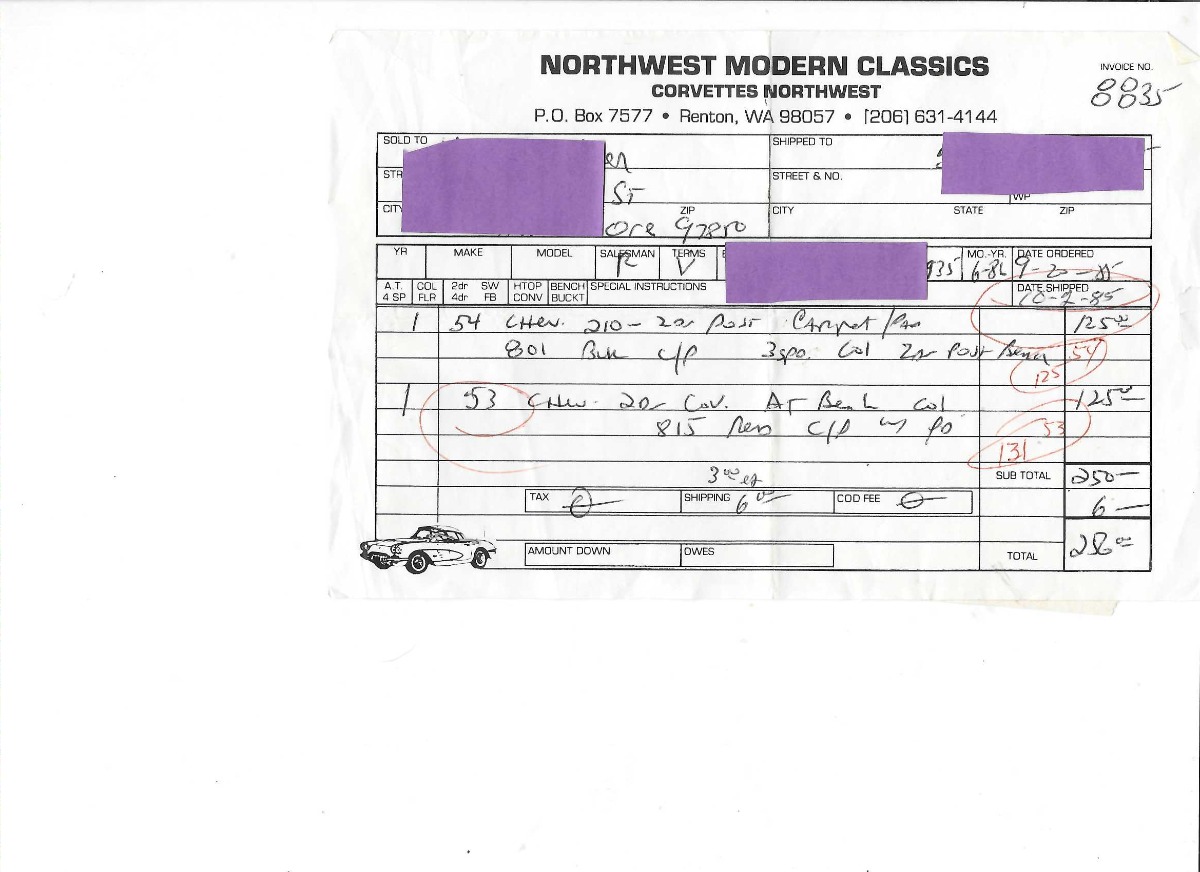 NORTHWEST MODERN CLASSICS
CORVETTES NORTHWEST
P.O. Box 7577 • Renton, WA 98057 • [206] 631-4144
INVOICE NO.
8835
SOLD TO
SHIPPED TO
er
STR
STREET & NO.
St
CITY
ZIP
CITY STATE ZIP
Ore 97850
YR MAKE MODEL SALESMAN TERMS MO.-YR. DATE ORDERED
R V 935 6-86 9-20-85
A.T. COL 2dr SW HTOP BENCH SPECIAL INSTRUCTIONS DATE SHIPPED
4 SP FLR 4dr FB CONV BUCKT 10-2-85
1 54 CHev. 210- 2Dr Post Carpet/Pad 125 00
801 Blk c/p 3spd. Col 2Dr Post Bench 54
125
1 53 CHev. 2Dr Cov. AT Bench Col 125 00
815 Red C/P w/ PD 53
131
3 00 ea SUB TOTAL 250-
TAX 0 SHIPPING 6 00 COD FEE 0 6-
AMOUNT DOWN OWES TOTAL 256 00